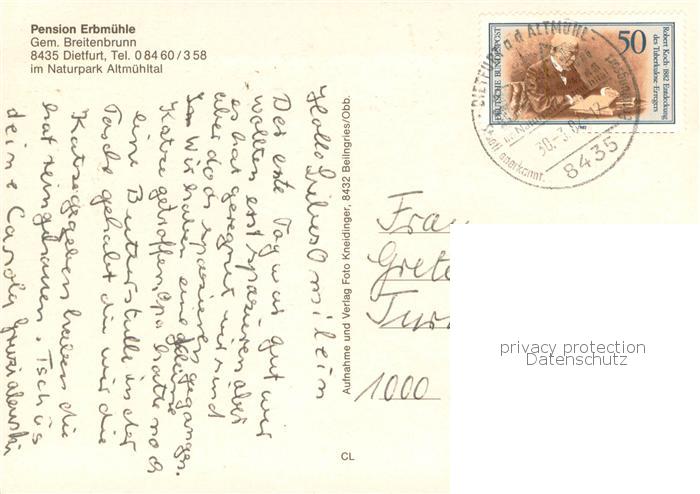 Pension Erbmühle
Gem. Breitenbrunn
8435 Dietfurt, Tel. 0 84 60 / 3 58
im Naturpark Altmühltal
50
DEUTSCHE BUNDESPOST
Robert Koch 1882 Entdeckung
des Tuberkulose-Erregers
DIETFURT a d ALTMÜHL
30.-3.
8435
staatl anerkannt.
Hallo Liebes Omilein
Der erste Tag war gut wir
wollten erst spazieren aber
es hat geregnet wir sind
aber doch spazieren
gegangen.
Wir haben eine
Katze getroffen Opa hatte noch
eine Butterstulle in der
Tasche gehabt die wir die
Katze gegeben haben die
hat reingehauen. Tschüs
deine Carola
Aufnahme und Verlag Foto Kneidinger, 8432 Beilngries/Obb.
Frau
Grete
1000
CL
privacy protection
Datenschutz